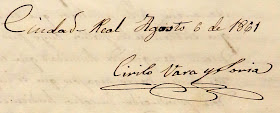 Ciudad-Real Agosto 6 de 1861
Cirilo Vara y Soria